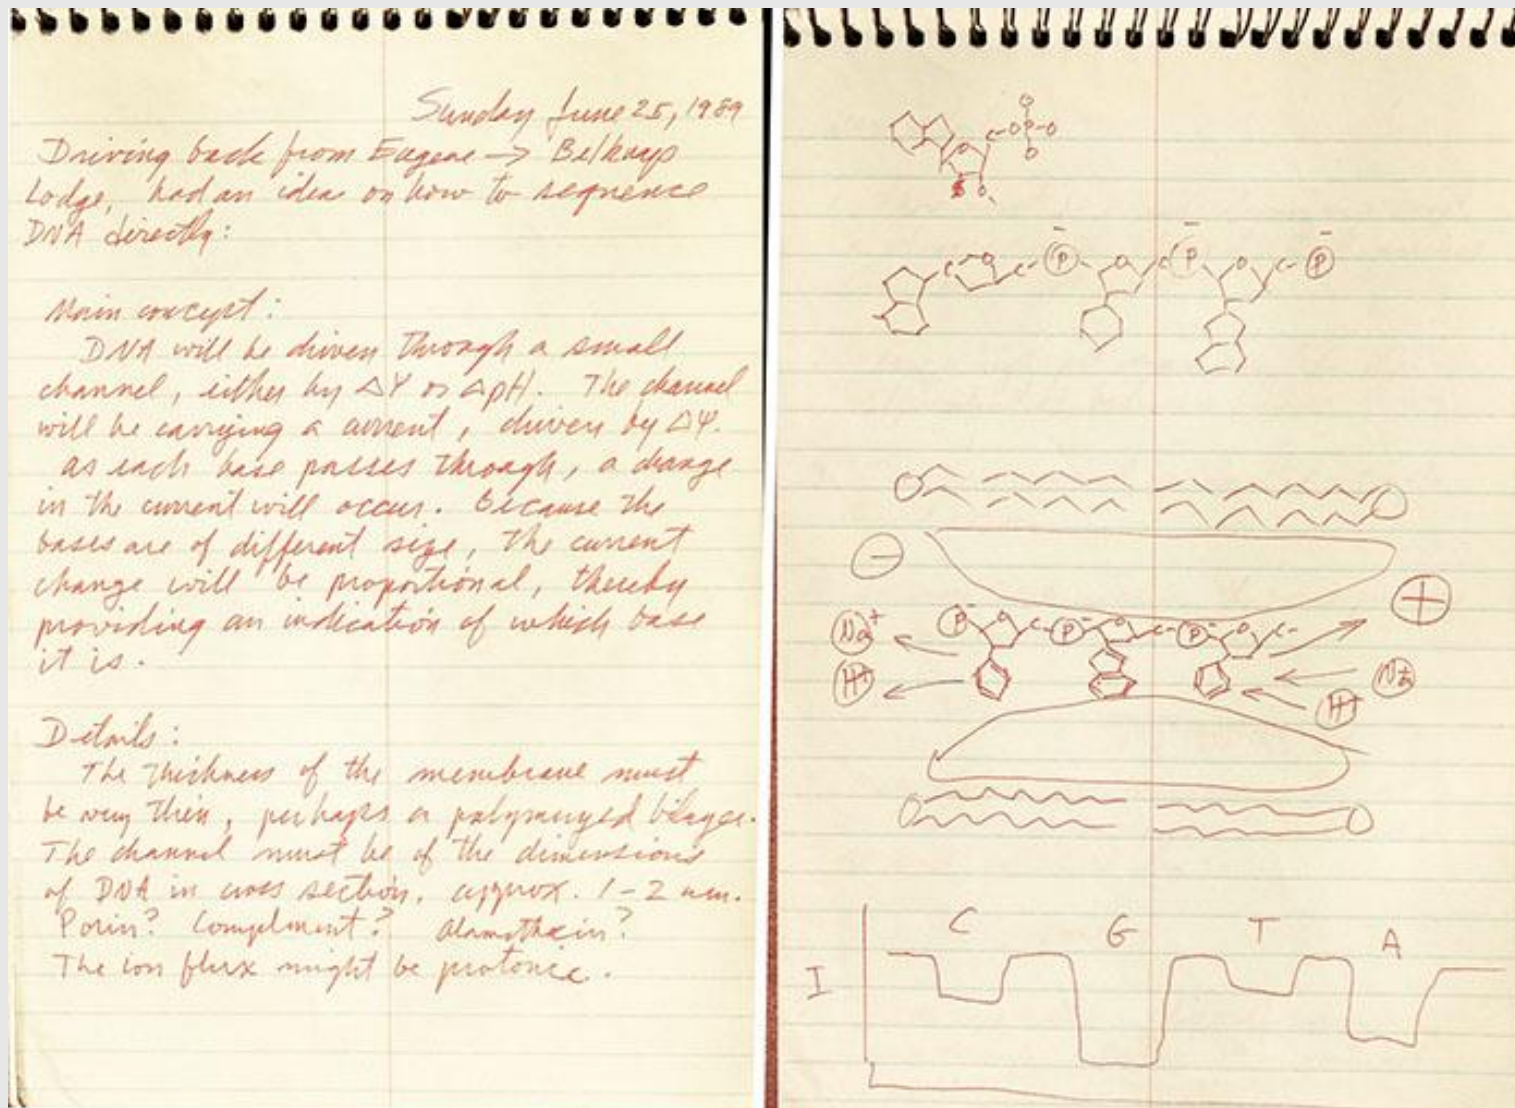 Sunday June 25, 1989
Driving back from Eugene → Belknap
Lodge, had an idea on how to sequence
DNA directly:
Main concept:
DNA will be driven through a small
channel, either by ΔΨ or ΔpH. The channel
will be carrying a current, driven by ΔΨ.
As each base passes through, a change
in the current will occur. Because the
bases are of different size, the current
change will be proportional, thereby
providing an indication of which base
it is.
Details:
The thickness of the membrane must
be very thin, perhaps a polymerized bilayer.
The channel must be of the dimensions
of DNA in cross section, approx. 1-2 nm.
Porin? Compliment? Alamethicin?
The ion flux might be protonic.
O
C-O-P-O
O
O
O
C O C- P - O C P - O C- P -
- +
P - O C- P - O C- P - O C-
Na+ Na+
H+ H+
C G T A
I